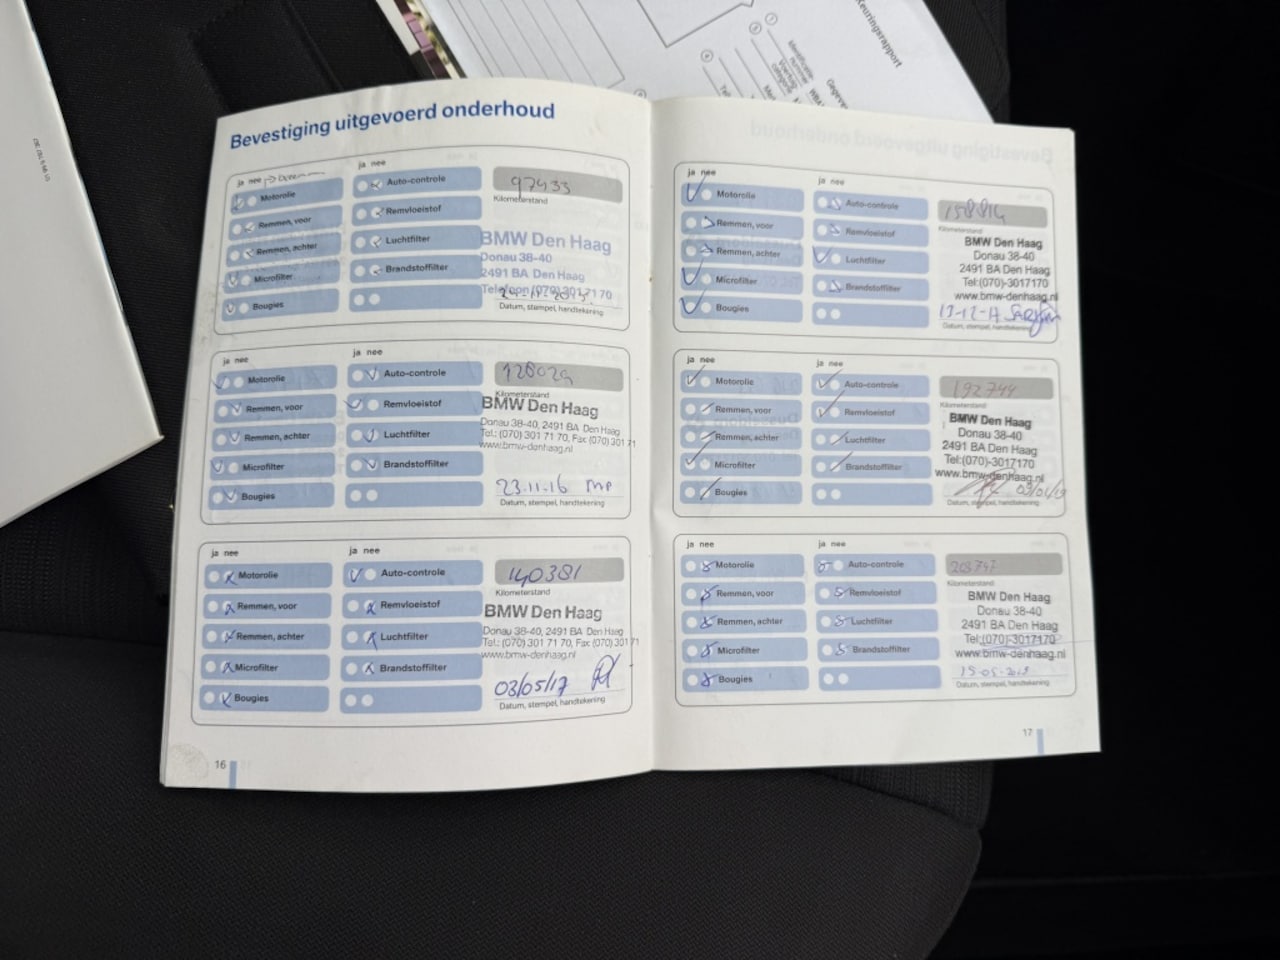 Keuringsrapport
Bevestiging uitgevoerd onderhoud
ja nee
Motorolie
Remmen, voor
Remmen, achter
Microfilter
Bougies
ja nee
Auto-controle
Remvloeistof
Luchtfilter
Brandstoffilter
97433
Kilometerstand
BMW Den Haag
Donau 38-40
2491 BA Den Haag
Telefoon (070) 301 71 70
Datum, stempel, handtekening
ja nee
Motorolie
Remmen, voor
Remmen, achter
Microfilter
Bougies
ja nee
Auto-controle
Remvloeistof
Luchtfilter
Brandstoffilter
128029
Kilometerstand
BMW Den Haag
Donau 38-40, 2491 BA Den Haag
Tel.: (070) 301 71 70, Fax (070) 301 71
www.bmw-denhaag.nl
23.11.16
Datum, stempel, handtekening
ja nee
Motorolie
Remmen, voor
Remmen, achter
Microfilter
Bougies
ja nee
Auto-controle
Remvloeistof
Luchtfilter
Brandstoffilter
140381
Kilometerstand
BMW Den Haag
Donau 38-40, 2491 BA Den Haag
Tel.: (070) 301 71 70, Fax (070) 301 71
www.bmw-denhaag.nl
03/05/17
Datum, stempel, handtekening
16
ja nee
Motorolie
Remmen, voor
Remmen, achter
Microfilter
Bougies
ja nee
Auto-controle
Remvloeistof
Luchtfilter
Brandstoffilter
158814
Kilometerstand
BMW Den Haag
Donau 38-40
2491 BA Den Haag
Tel:(070)-3017170
www.bmw-denhaag.nl
Datum, stempel, handtekening
ja nee
Motorolie
Remmen, voor
Remmen, achter
Microfilter
Bougies
ja nee
Auto-controle
Remvloeistof
Luchtfilter
Brandstoffilter
192744
Kilometerstand
BMW Den Haag
Donau 38-40
2491 BA Den Haag
Tel:(070)-3017170
www.bmw-denhaag.nl
Datum, stempel, handtekening
ja nee
Motorolie
Remmen, voor
Remmen, achter
Microfilter
Bougies
ja nee
Auto-controle
Remvloeistof
Luchtfilter
Brandstoffilter
Kilometerstand
BMW Den Haag
Donau 38-40
2491 BA Den Haag
Tel:(070)-3017170
www.bmw-denhaag.nl
Datum, stempel, handtekening
17